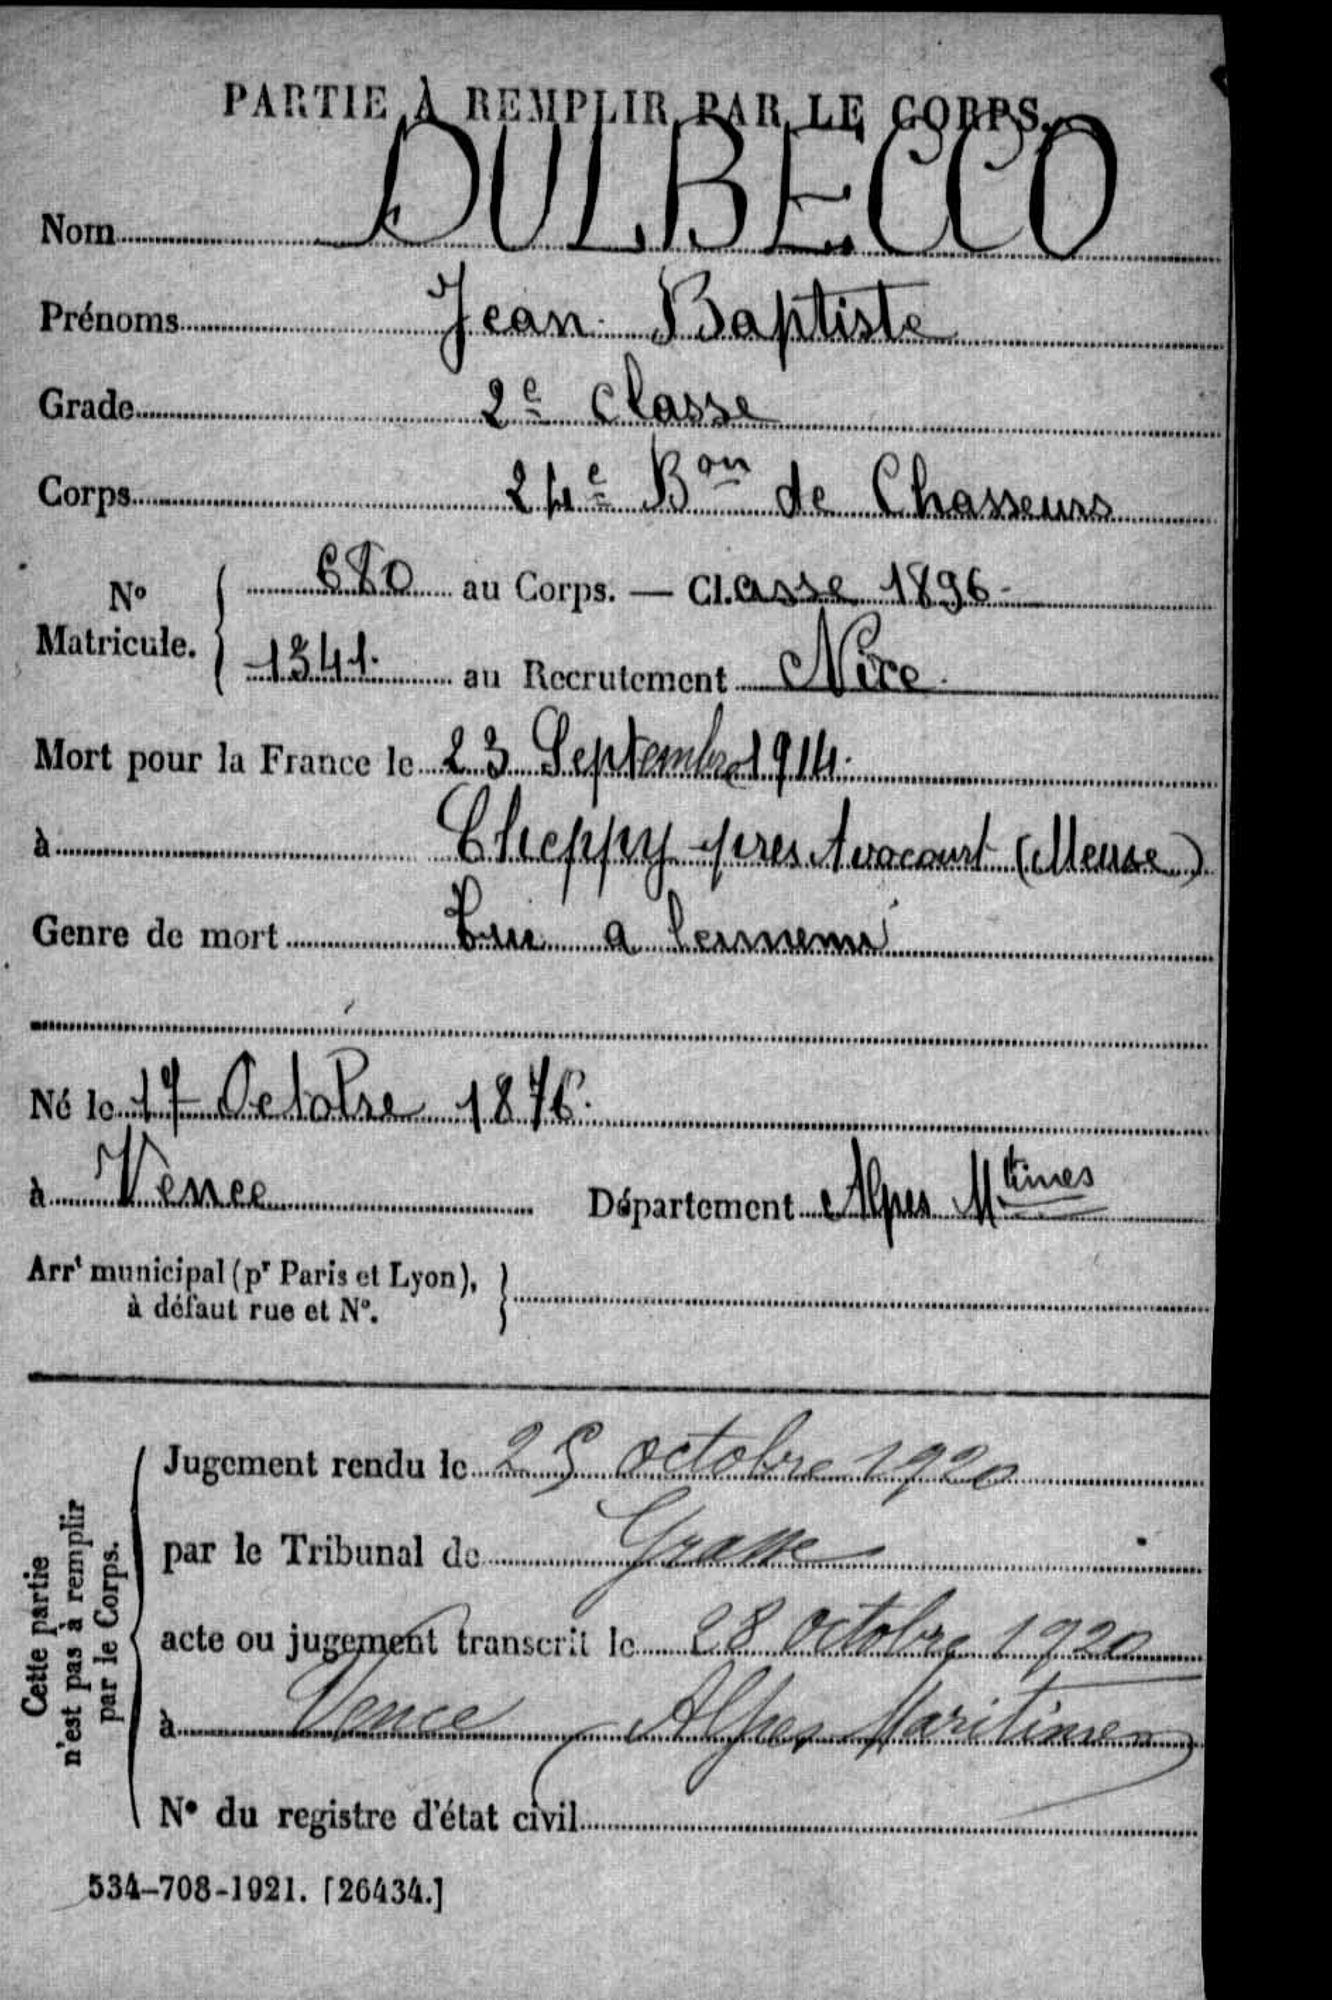 PARTIE À REMPLIR PAR LE CORPS.
Nom DULBECCO
Prénoms Jean Baptiste
Grade 2e classe
Corps 24e Bon de Chasseurs
No Matricule. 680 au Corps. — Cl.asse 1896
1341. au Recrutement Nice
Mort pour la France le 23 Septembre 1914.
à Cheppy près Avocourt (Meuse)
Genre de mort Tué a l'ennemi
Né le 17 Octobre 1876.
à Vence Département Alpes Mtimes
Arrt municipal (pr Paris et Lyon),
à défaut rue et No.
Cette partie
n'est pas à remplir
par le Corps.
Jugement rendu le 25 octobre 1920
par le Tribunal de Grasse
acte ou jugement transcrit le 28 octobre 1920
à Vence Alpes Maritimes
No du registre d'état civil
534-708-1921. [26434.]